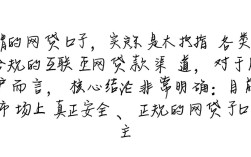 谓的网贷口子，实际是大抵指各类
合规的互联互网贷款渠道，对于用
户而言，核心结论非常明确：目前
市场上真正安全、正规的网贷子口
主